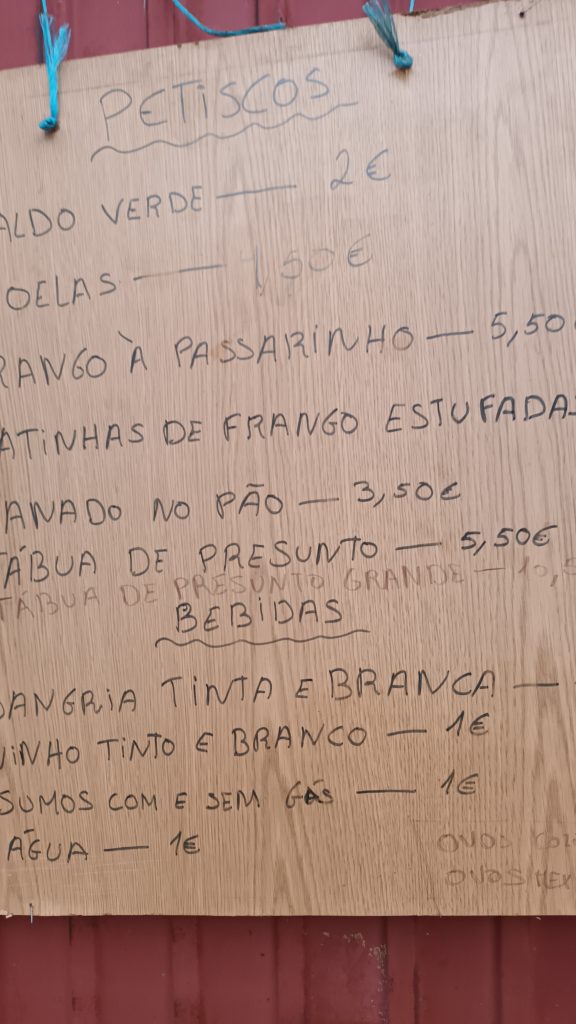 PETISCOS
ALDO VERDE — 2€
OELAS — 1,50€
RANGO À PASSARINHO — 5,50
ATINHAS DE FRANGO ESTUFADAS
ANADO NO PÃO — 3,50€
TÁBUA DE PRESUNTO — 5,50€
TÁBUA DE PRESUNTO GRANDE — 10,5
BEBIDAS
SANGRIA TINTA E BRANCA —
VINHO TINTO E BRANCO — 1€
SUMOS COM E SEM GÁS — 1€
ÁGUA — 1€
OVOS COZ
OVOS MEX